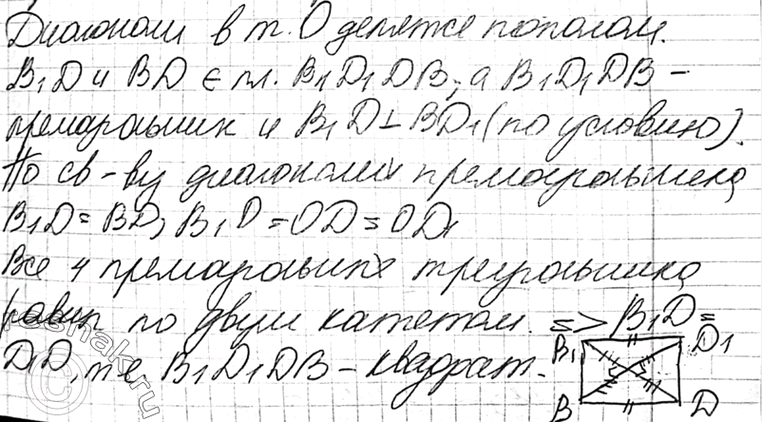 Диагонали в т. О делятся пополам.
B₁D и BD ∈ пл. B₁D₁DB, а B₁D₁DB –
прямоугольник и B₁D ⊥ BD₁ (по условию).
По св-ву диагоналей прямоугольника
B₁D = BD, B₁D = OD = OD₁
Все 4 прямоугольные треугольника
равны по двум катетам. => B₁D =
D₁D, т.е. B₁D₁DB – квадрат.
B₁ D₁
B D